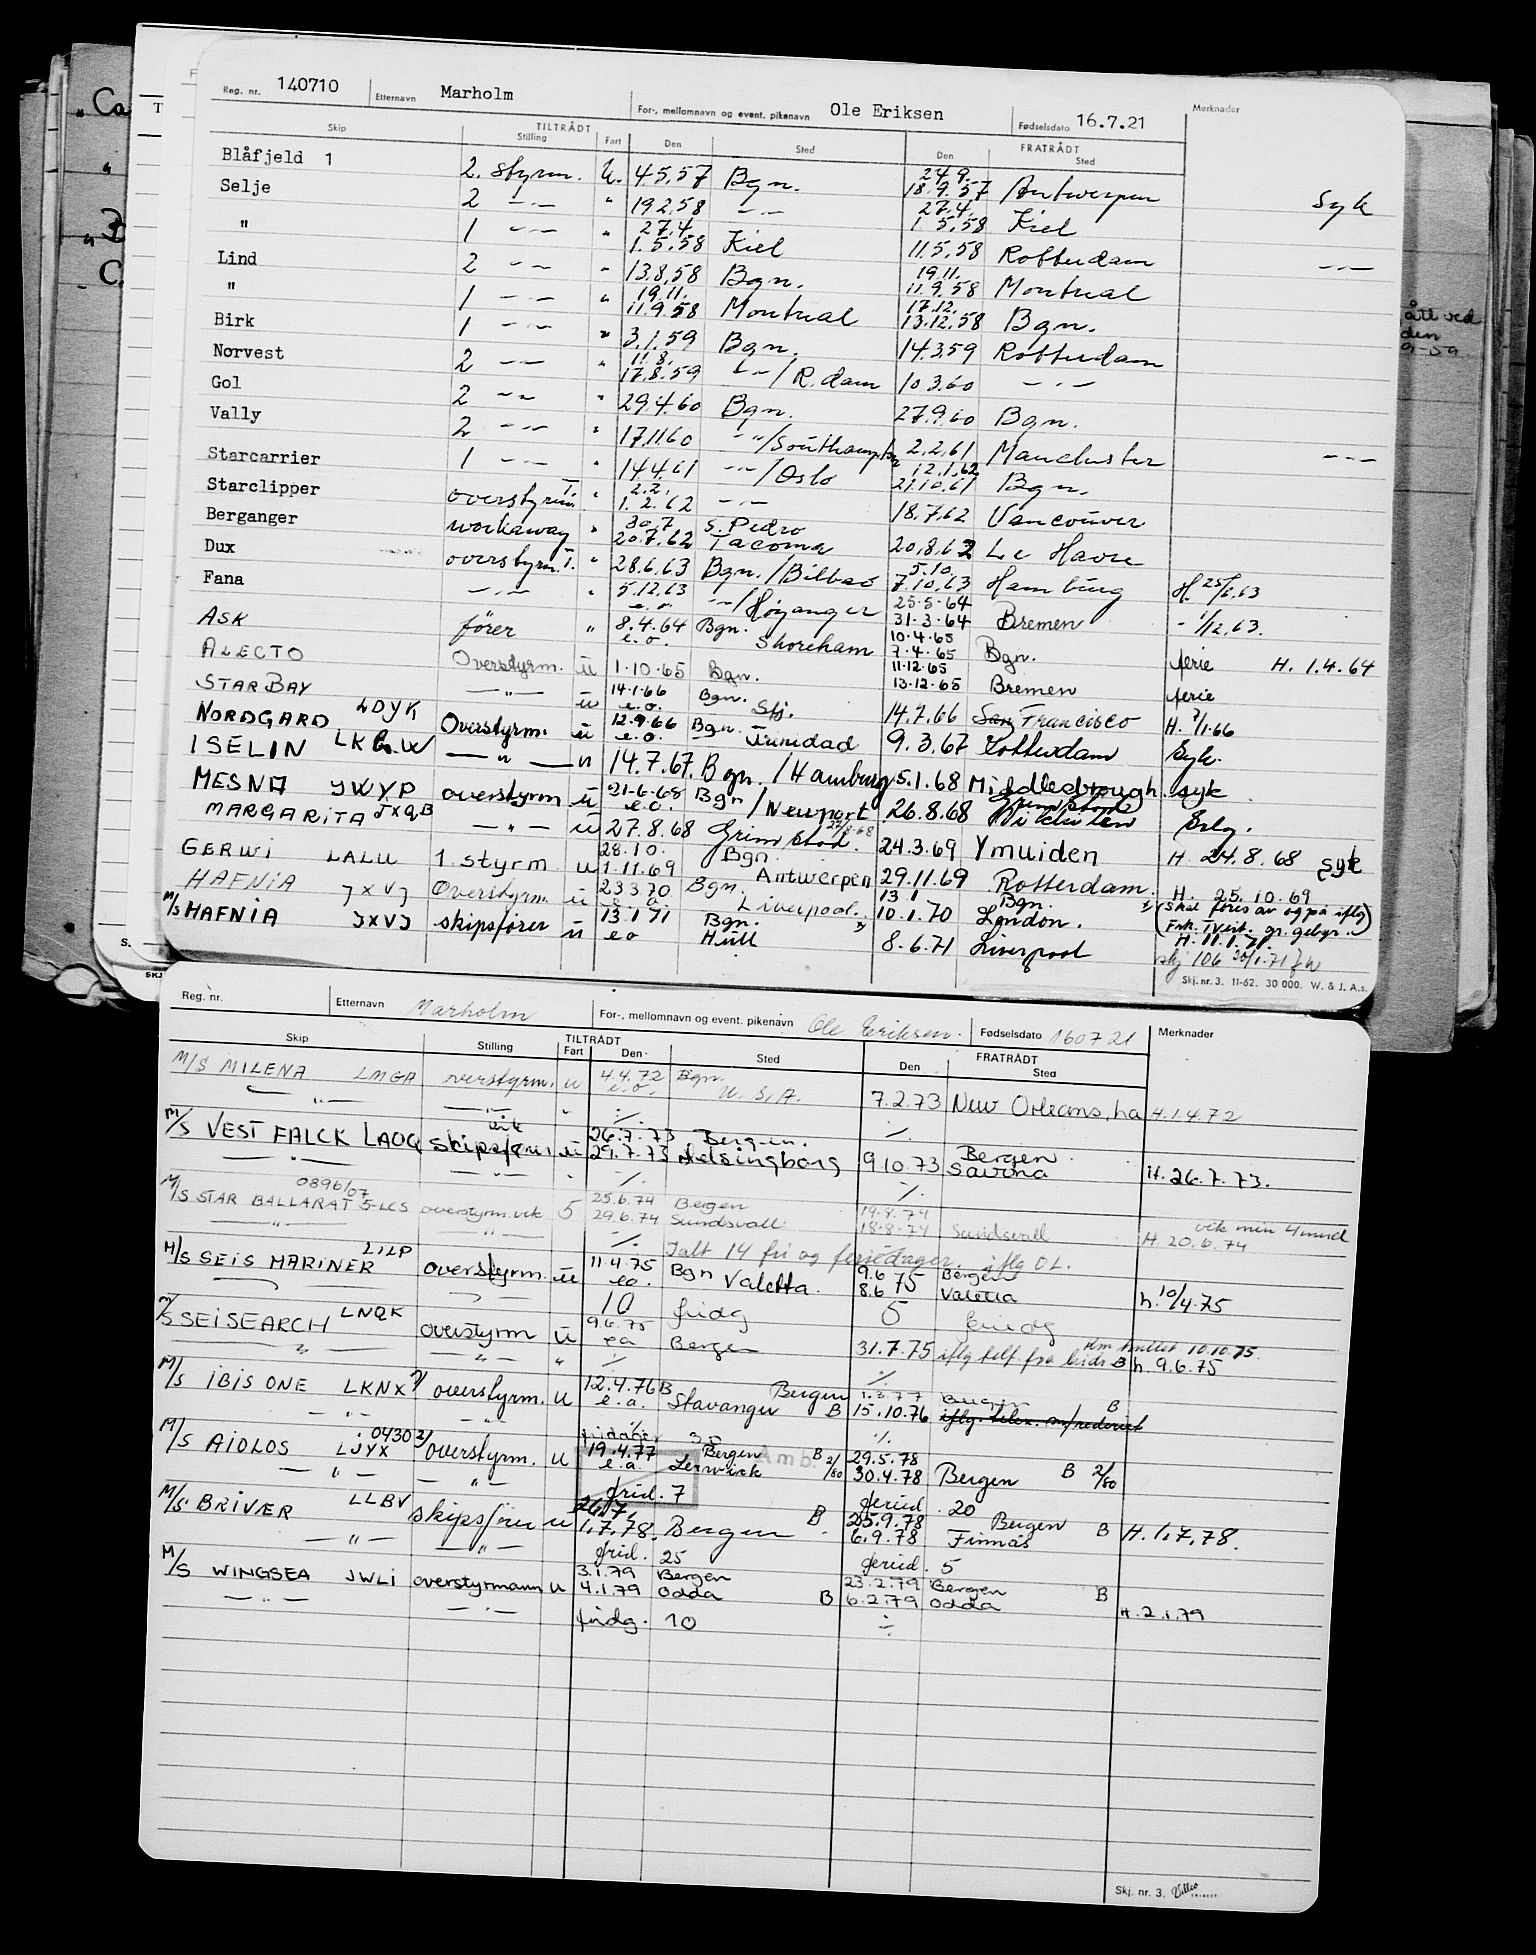 Reg. nr. 140710 Etternavn Marholm For-, mellomnavn og event. pikenavn Ole Eriksen Fødselsdato 16.7.21 Merknader
Skip TILTRÅDT Stilling Fart Den Sted FRATRÅDT Den Sted
Blåfjeld 1 2. styrm. U. 4.5.57 Bgn. 24.9. 18.9.57 Antwerpen Syk
Selje 2 -"- " 19.2.58 -"- 27.4. 1.5.58 Kiel
" 1 -"- " 27.4. 1.5.58 Kiel 11.5.58 Rotterdam -"-
Lind 2 -"- " 13.8.58 Bgn. 19.11. 11.9.58 Montreal
" 1 -"- " 19.11. 11.9.58 Montreal 17.12. 13.12.58 Bgn.
Birk 1 -"- " 3.1.59 Bgn. 14.3.59 Rotterdam
Norvest 2 -"- " 11.8. 17.8.59 -"-/R.dam 10.3.60 -"-
Gol 2 -"- " 29.4.60 Bgn. 27.9.60 Bgn.
Vally 2 -"- " 17.11.60 -"-/Southampton 2.2.61 Manchester -"-
Starcarrier 1 -"- " 14.4.61 -"-/Oslo 12.1.62 21.10.61 Bgn.
Starclipper overstyrm. T. " 2.2. 1.2.62 -"- 18.7.62 Vancouver
Berganger workaway " 30.7 20.7.62 S. Pedro Tacoma 20.8.62 Le Havre
Dux overstyrm. T. " 28.6.63 Bgn./Bilbao 5.10. 7.10.63 Hamburg H 25/6.63
Fana -"- " 5.12.63 e.o. -"-/Høyanger 25.5.64 31.3.64 Bremen - 1/12.63.
ASK fører " 8.4.64 e.o. Bgn. Shoreham 10.4.65 7.4.65 Bgn. ferie H. 1.4.64
ALECTO Overstyrm. u 1.10.65 Bgn. 11.12.65 13.12.65 Bremen ferie
STAR BAY -"- u 14.1.66 e.o. Bgn. Stj. 14.7.66 San Francisco H. 7/1.66
NORDGARD LDYK Overstyrm. u 12.9.66 e.o. Bgn. Trinidad 9.3.67 Rotterdam Syk.
ISELIN -"- u 14.7.67. Bgn./Hamburg 5.1.68 Middlesbrough. syk
MESNA JWYP overstyrm u 21.6.68 e.o. Bgn/Newport 26.8.68 Grimstad
MARGARITA JXQB -"- u 27.8.68 Grimstad. 24.3.69 Ymuiden H 24.8.68 syk
GERWI LALU 1. styrm u 28.10. 1.11.69 Bgn. Antwerpen 29.11.69 Rotterdam. H. 25.10.69
HAFNIA JXVJ Overstyrm. u 23.3.70 e.o. Bgn. Liverpool. 13.1 10.1.70 Bgn. London. (skal føres av og på iflg Frk. Tveit. gr. gebyr.)
M/S HAFNIA JXVJ skipsfører u 13.1.71 eo Bgn. Hull 8.6.71 Liverpool H. 11.1.71.
Skj. nr. 3. 11-62. 30 000. W. & J. A.s.
Reg. nr. Etternavn Marholm For-, mellomnavn og event. pikenavn Ole Eriksen. Fødselsdato 160721 Merknader
Skip Stilling TILTRÅDT Fart Den Sted FRATRÅDT Den Sted
M/S MILENA LMGA overstyrm. u 4.4.72 e.o. Bgn. U.S.A. 7.2.73 New Orleans, La H.1.4.72
-"- -"- " ./. ./.
M/S VEST FALCK LAOG skipsfører vik u 26.7.73 Bergen. 29.7.73 Helsingborg 9.10.73 Bergen Savona H. 26.7.73.
-"- -"- " ./. ./.
M/S STAR BALLARAT 0896/07 5-LCS overstyrm.vik 5 25.6.74 Bergen 29.6.74 Sundsvall 19.8.74 18.8.74 Sundsvall vik min 4 mnd H. 20.6.74
-"- " ./. Ialt 14 fri og feriedager. iflg OL.
M/S SEIS MARINER LILP overstyrm. u 11.4.75 eo. Bgn Valetta. 9.6 8.6 75 Bergen Valetta h. 10/4.75
10 fridg 5 feriedg
M/S SEISEARCH LNQK overstyrm u 9.6.75 ea Bergen 31.7.75 iflg telf fra B h. 9.6.75
-"- -"- " ./. ./. 10.10.75.
M/S IBIS ONE LKNX overstyrm. u 12.4.76 B e.a. Bergen Stavanger B 1.3.77 15.10.76 Bergen B iflg. telex. m/rederiet
-"- -"- ./. fridager 30 ./.
M/S AIOLOS 0430 LJYX overstyrm. u 19.4.77 e.a. Bergen Lerwick B 2/80 29.5.78 30.4.78 Bergen B 2/80
-"- -"- frid. 7 feried. 20
M/S BRIVÆR LLBV skipsfører u 26.7. 1.7.78. Bergen B. 25.9.78 6.9.78 Bergen Finnås B H. 1.7.78.
-"- -"- frid. 25 feried. 5
M/S WINGSEA JWLI overstyrmann u 3.1.79 Bergen 4.1.79 Odda B 23.2.79 Bergen 6.2.79 Odda B H. 2.1.79
-"- -"- fridg. 10 ./.
Skj. nr. 3.